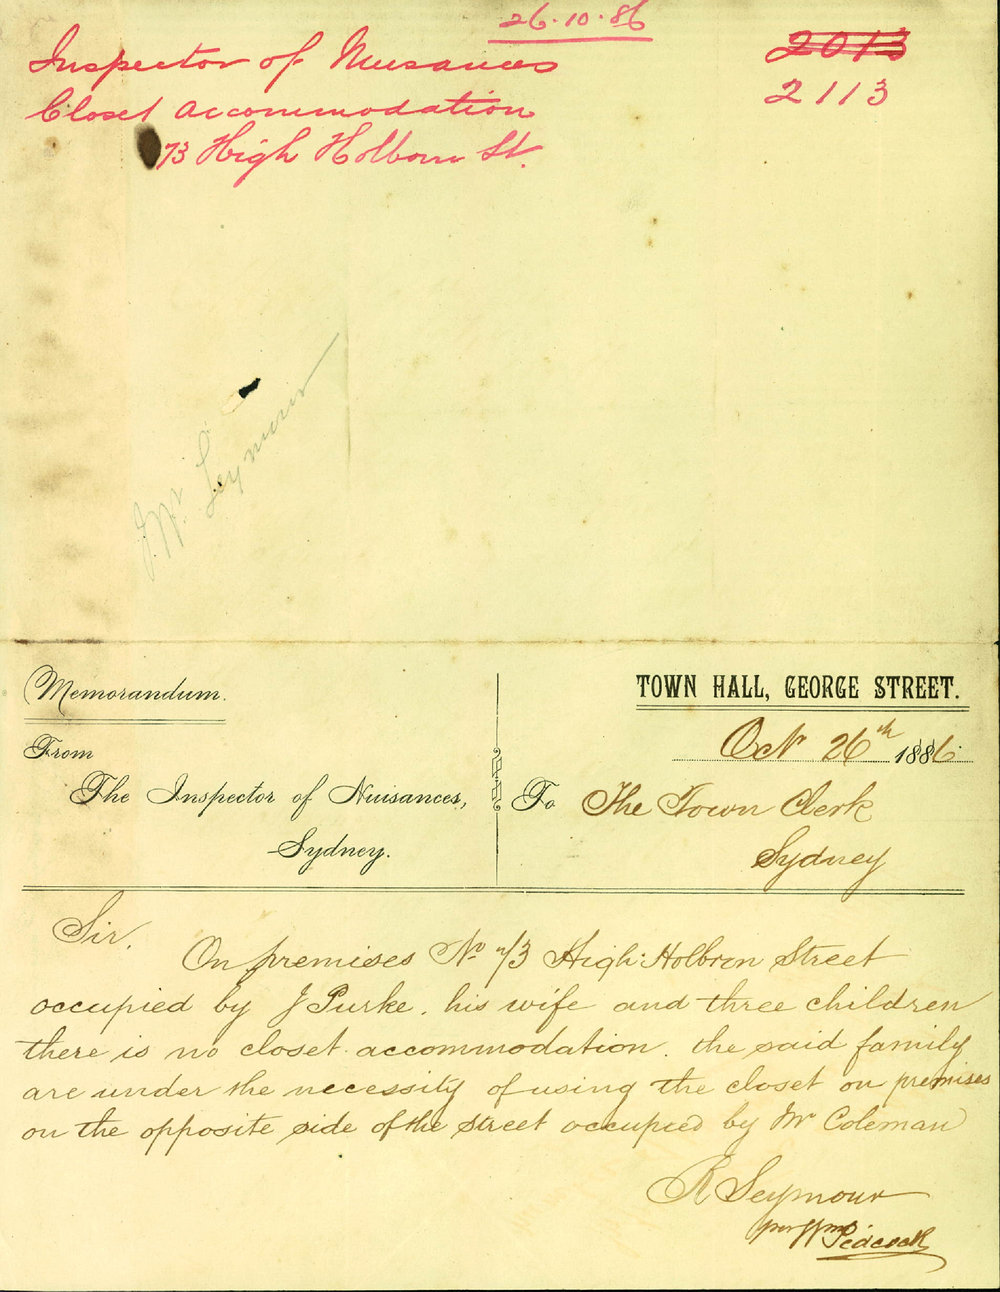 26.10.86
Inspector of Nusances
2013
Closet accommodation
2113
73 High Holborn St.
Mr. Seymour
Memorandum.
TOWN HALL, GEORGE STREET.
Oct 26th 1886.
From
The Inspector of Nuisances,
Sydney.
To The Town Clerk
Sydney
Sir.
On premises No 73 High Holbron Street
occupied by J Purke, his wife and three children
there is no closet accommodation. the said family
are under the necessity of using the closet on premises
on the opposite side of the street occupied by Mr Coleman
R Seymour
per Wm Peacock